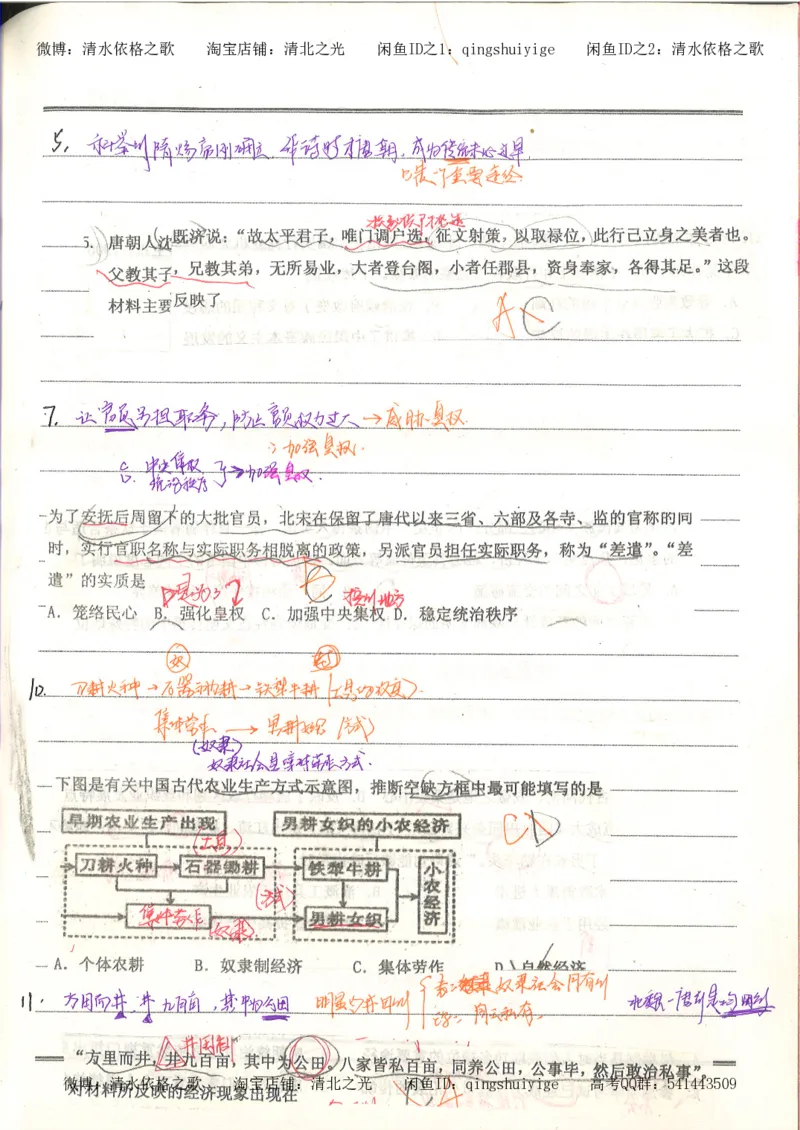 微博：清水依格之歌 淘宝店铺：清北之光 闲鱼ID之1：qingshuiyige 闲鱼ID之2：清水依格之歌
5. 科举制隋炀帝刚确立
5. 唐朝人沈既济说：“故太平君子，唯门调户选，征文射策，以取禄位，此行己立身之美者也。
父教其子，兄教其弟，无所易业，大者登台阁，小者任郡县，资身奉家，各得其足。”这段
材料主要反映了
A C
7. 让官员分担职务，防止官员权力过大→威胁皇权.
∴加强皇权.
8. 中央集权
统治秩序 →加强皇权.
为了安抚后周留下的大批官员，北宋在保留了唐代以来三省、六部及各寺、监的官称的同
时，实行官职名称与实际职务相脱离的政策，另派官员担任实际职务，称为“差遣”。“差
遣”的实质是
B
A. 笼络民心 B. 强化皇权 C. 加强中央集权 D. 稳定统治秩序
10. 刀耕火种→石器锄耕→铁犁牛耕
集体劳作→男耕女织
(奴隶)
奴隶社会是集体劳作方式.
下图是有关中国古代农业生产方式示意图，推断空缺方框中最可能填写的是
早期农业生产出现 男耕女织的小农经济
(工具)
C D
刀耕火种 石器锄耕 铁犁牛耕 小农经济
集体劳作 男耕女织
A. 个体农耕 B. 奴隶制经济 C. 集体劳作 D. 自然经济
11. 方里而井，井九百亩，其中为公田
井田制
“方里而井，井九百亩，其中为公田。八家皆私百亩，同养公田，公事毕，然后敢治私事”
微博：清水依格之歌 淘宝店铺：清北之光 闲鱼ID：qingshuiyige 高考QQ群：541443509
对材料所反映的经济现象出现在